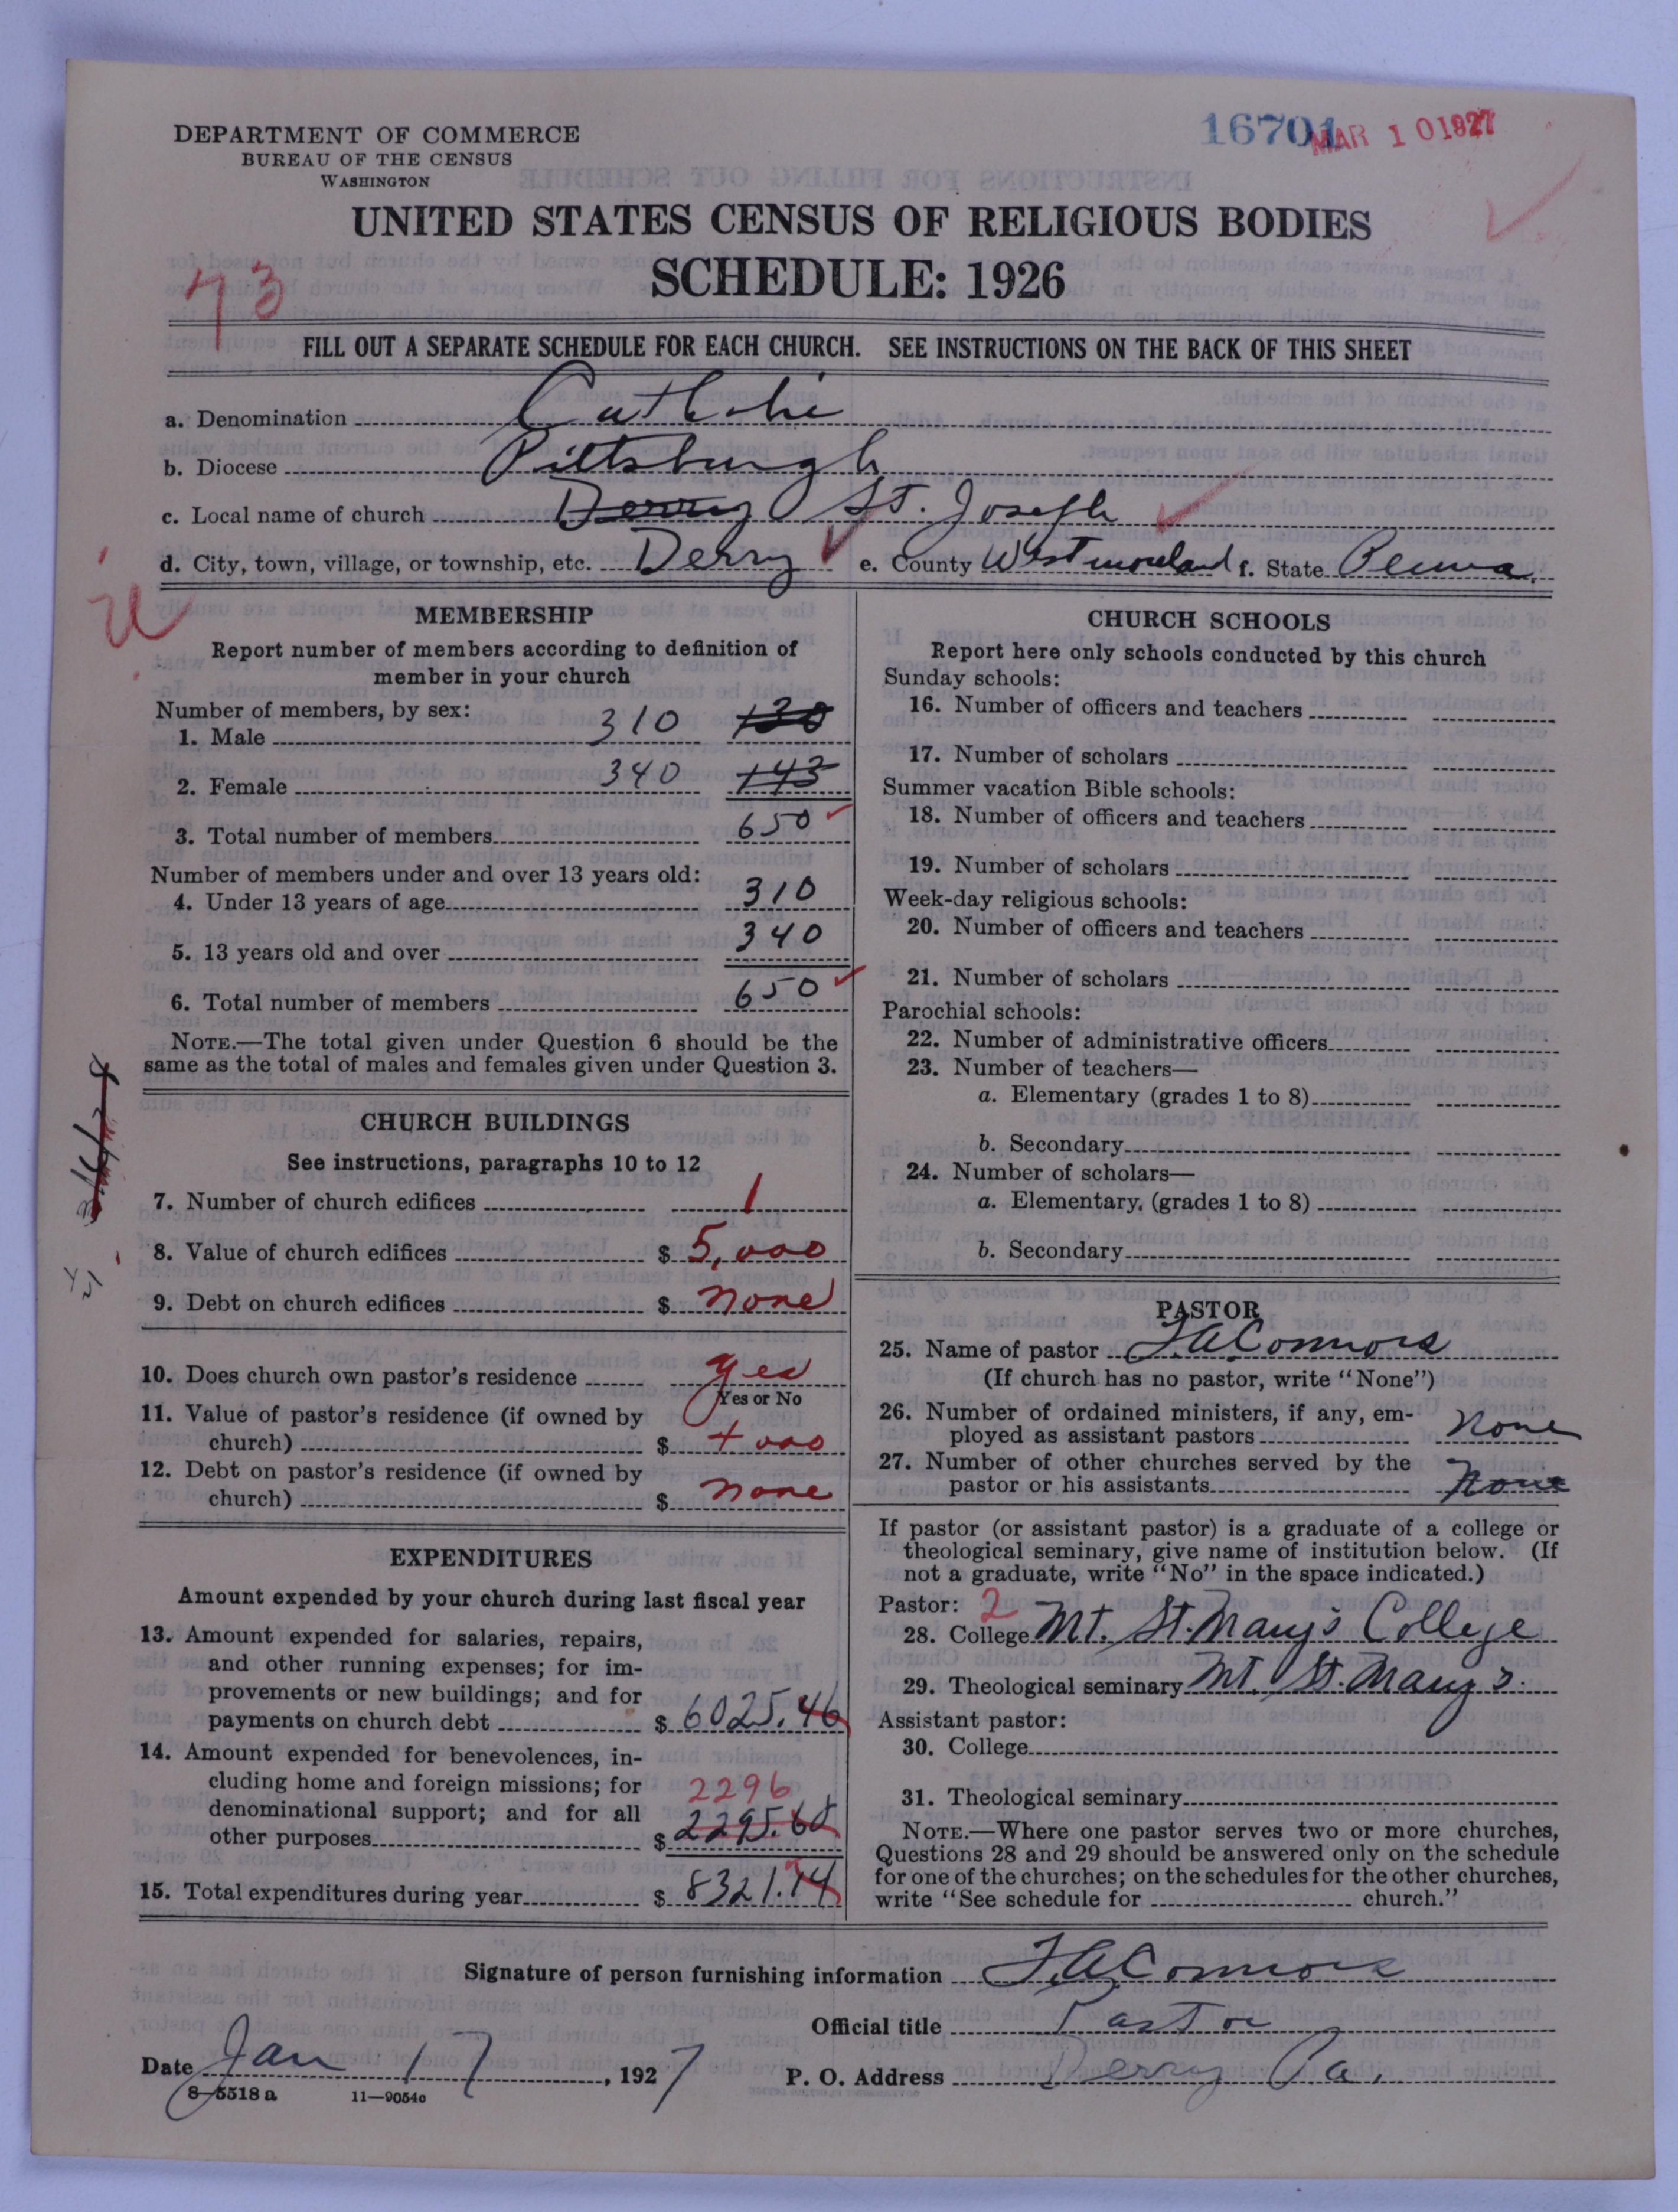 DEPARTMENT OF COMMERCE
BUREAU OF THE CENSUS
WASHINGTON
16701
MAR 10 1927
UNITED STATES CENSUS OF RELIGIOUS BODIES
SCHEDULE: 1926
73
FILL OUT A SEPARATE SCHEDULE FOR EACH CHURCH. SEE INSTRUCTIONS ON THE BACK OF THIS SHEET
a. Denomination Catholic
b. Diocese Pittsburgh
c. Local name of church Derry St. Joseph
d. City, town, village, or township, etc. Derry e. County Westmoreland f. State Penna.
MEMBERSHIP
Report number of members according to definition of
member in your church
Number of members, by sex:
1. Male 310 130
2. Female 340 143
3. Total number of members 650
Number of members under and over 13 years old:
4. Under 13 years of age 310
5. 13 years old and over 340
6. Total number of members 650
NOTE.—The total given under Question 6 should be the
same as the total of males and females given under Question 3.
CHURCH BUILDINGS
See instructions, paragraphs 10 to 12
7. Number of church edifices 1
8. Value of church edifices $ 5,000
9. Debt on church edifices $ none
10. Does church own pastor's residence yes
Yes or No
11. Value of pastor's residence (if owned by
church) $ 4000
12. Debt on pastor's residence (if owned by
church) $ none
EXPENDITURES
Amount expended by your church during last fiscal year
13. Amount expended for salaries, repairs,
and other running expenses; for im-
provements or new buildings; and for
payments on church debt $ 6025.46
14. Amount expended for benevolences, in-
cluding home and foreign missions; for
2296
denominational support; and for all
other purposes $ 2295.68
15. Total expenditures during year $ 8321.14
CHURCH SCHOOLS
Report here only schools conducted by this church
Sunday schools:
16. Number of officers and teachers
17. Number of scholars
Summer vacation Bible schools:
18. Number of officers and teachers
19. Number of scholars
Week-day religious schools:
20. Number of officers and teachers
21. Number of scholars
Parochial schools:
22. Number of administrative officers
23. Number of teachers—
a. Elementary (grades 1 to 8)
b. Secondary
24. Number of scholars—
a. Elementary (grades 1 to 8)
b. Secondary
PASTOR
25. Name of pastor F.A. Connors
(If church has no pastor, write "None")
26. Number of ordained ministers, if any, em-
ployed as assistant pastors none
27. Number of other churches served by the
pastor or his assistants none
If pastor (or assistant pastor) is a graduate of a college or
theological seminary, give name of institution below. (If
not a graduate, write "No" in the space indicated.)
Pastor: 2
28. College Mt. St. Mary's College
29. Theological seminary Mt. St. Mary's
Assistant pastor:
30. College
31. Theological seminary
NOTE.—Where one pastor serves two or more churches,
Questions 28 and 29 should be answered only on the schedule
for one of the churches; on the schedules for the other churches,
write "See schedule for church."
Signature of person furnishing information F.A. Connors
Official title Pastor
Date Jan 17, 1927 P. O. Address Derry Pa.
8-5518 a 11-9054c